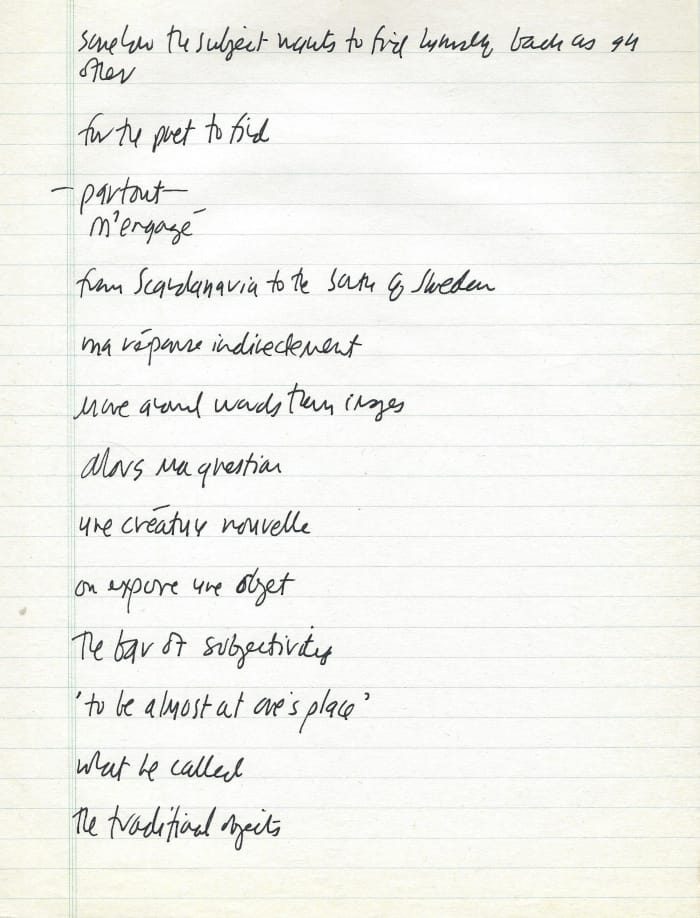 somehow the subject wants to find himself back as an
other
for the poet to find
— partout —
m'engagé
from Scandanavia to the south of Sweden
ma réponse indirectement
more around words than images
alors ma question
une créature nouvelle
on expose une objet
the bar of subjectivity
'to be almost at one's place'
what he called
the traditional objects